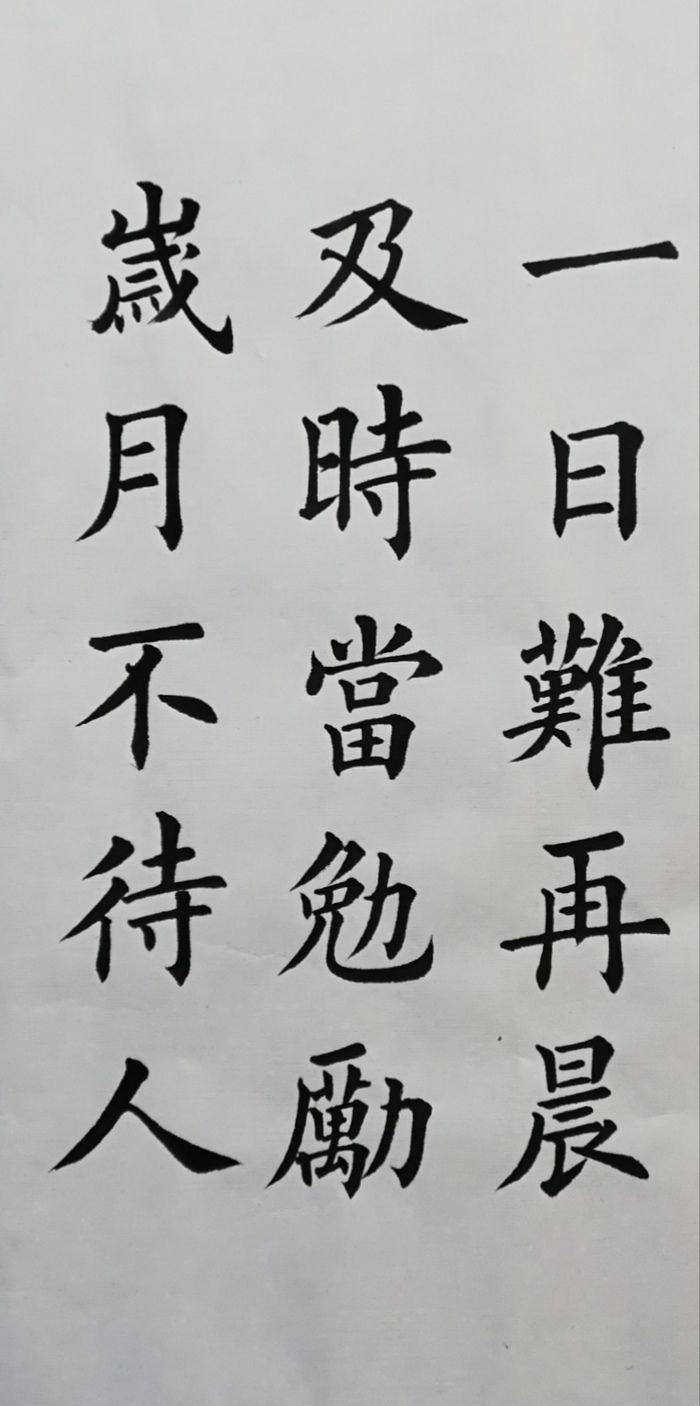 一日難再晨
及時當勉勵
歲月不待人